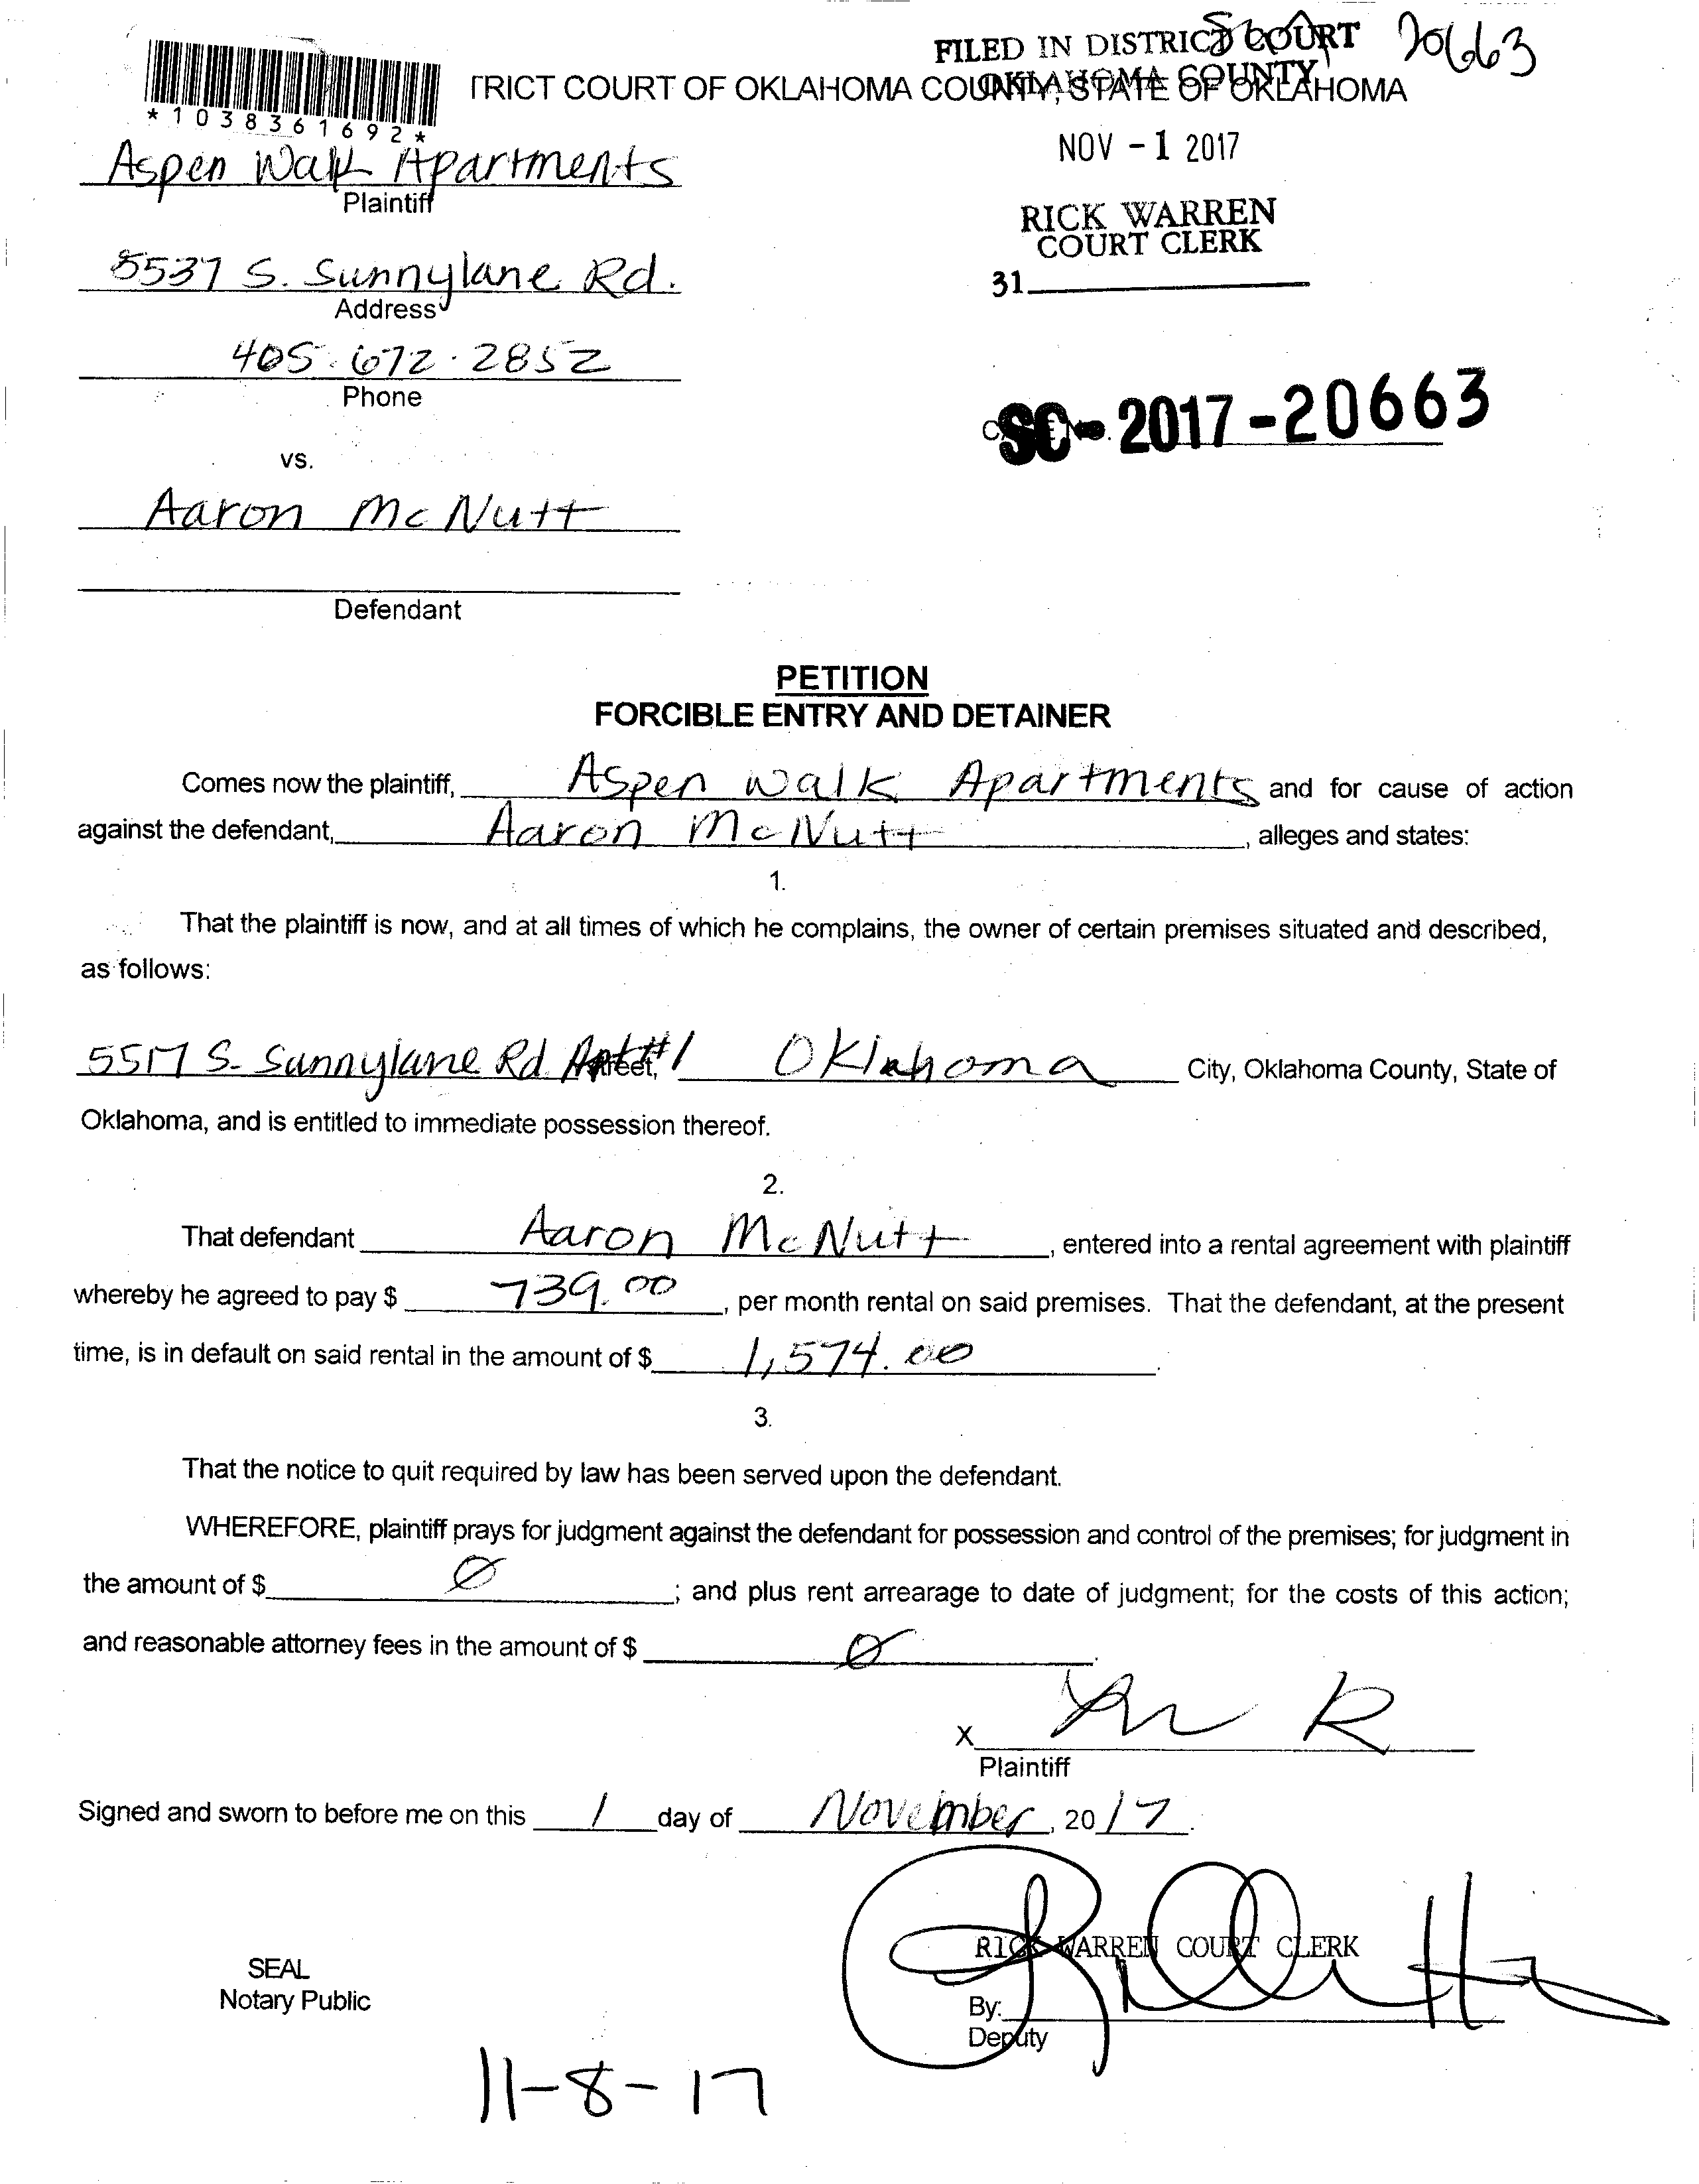 FILED IN DISTRICT COURT
OKLAHOMA COUNTY
20663
TRICT COURT OF OKLAHOMA COUNTY, STATE OF OKLAHOMA
*1038361692*
NOV - 1 2017
Aspen Walk Apartments
Plaintiff
RICK WARREN
COURT CLERK
5537 S. Sunnylane Rd.
31
Address
405.672.2852
Phone
SC - 2017 - 20663
vs.
Aaron McNutt
Defendant
PETITION
FORCIBLE ENTRY AND DETAINER
Comes now the plaintiff, Aspen Walk Apartments and for cause of action
against the defendant, Aaron McNutt, alleges and states:
1.
That the plaintiff is now, and at all times of which he complains, the owner of certain premises situated and described,
as follows:
5517 S. Sunnylane Rd Apt #1 Street, Oklahoma City, Oklahoma County, State of
Oklahoma, and is entitled to immediate possession thereof.
2.
That defendant Aaron McNutt, entered into a rental agreement with plaintiff
whereby he agreed to pay $ 739.00, per month rental on said premises. That the defendant, at the present
time, is in default on said rental in the amount of $ 1,574.00.
3.
That the notice to quit required by law has been served upon the defendant.
WHEREFORE, plaintiff prays for judgment against the defendant for possession and control of the premises; for judgment in
the amount of $ Ø; and plus rent arrearage to date of judgment; for the costs of this action;
and reasonable attorney fees in the amount of $ Ø.
X
Plaintiff
Signed and sworn to before me on this 1 day of November, 2017.
RICK WARREN COURT CLERK
SEAL
Notary Public
By:
Deputy
11-8-17